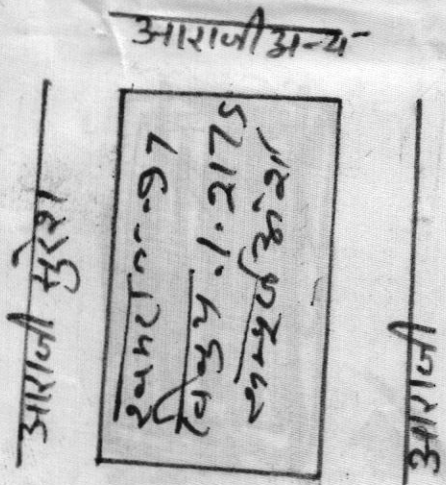 आराजी अन्य
आराजी सुरेश
खसरा नं-97
रकबा 1.2175
सम्पूर्ण अंश
आराजी